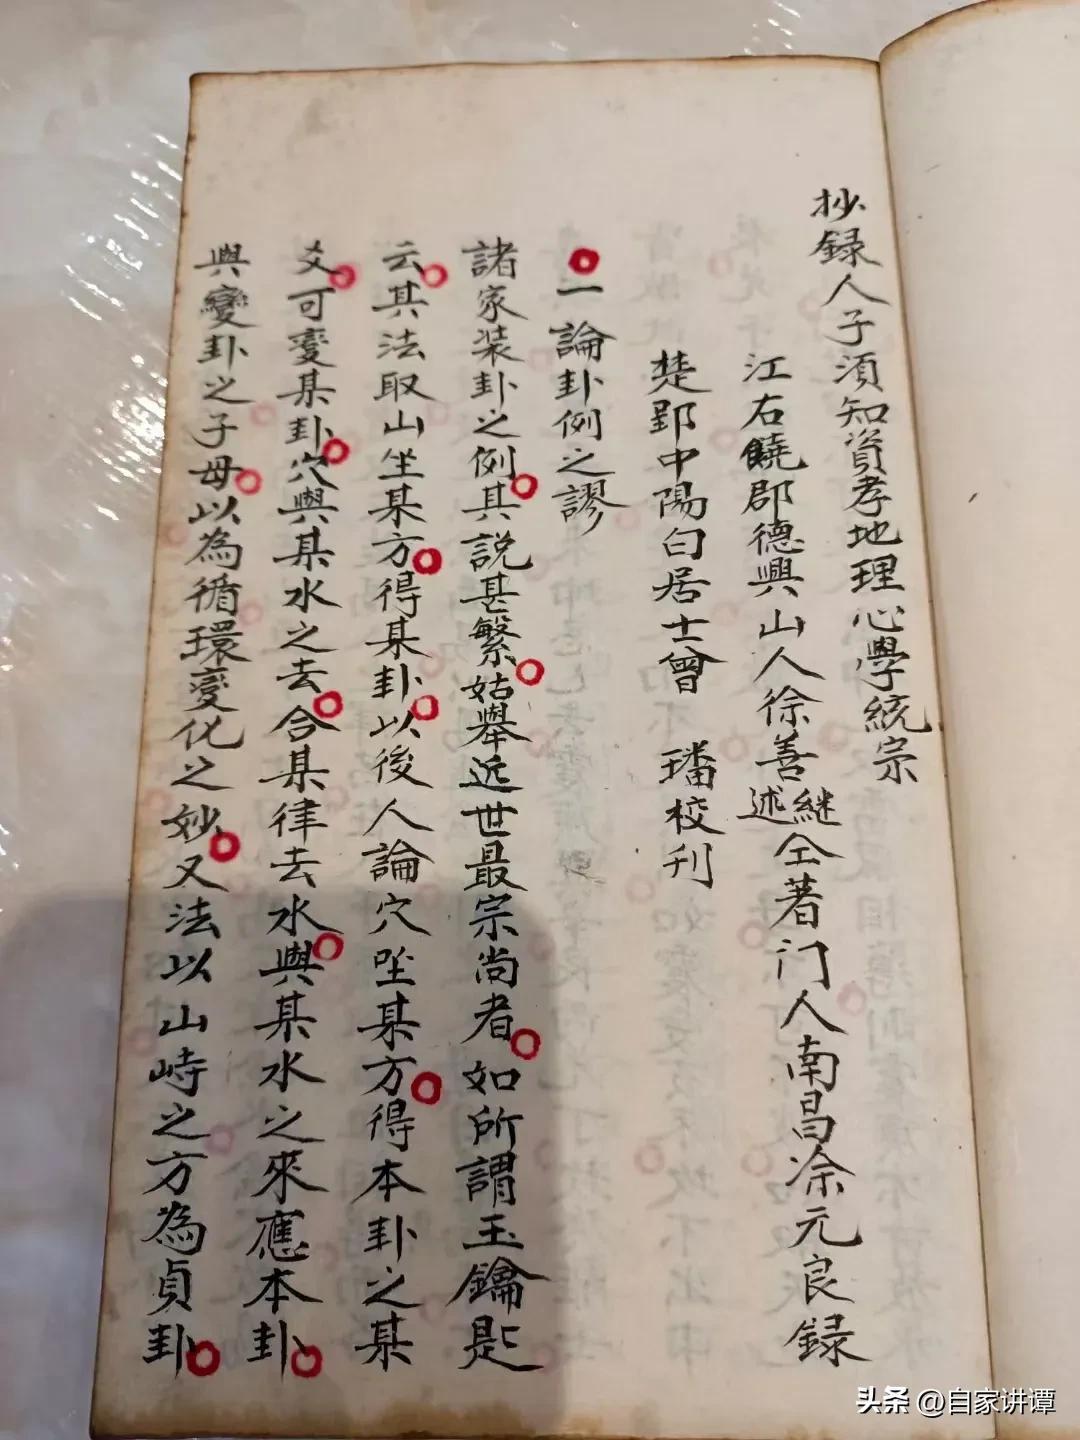 抄録人子須知資孝地理心學統宗
江右饒郡德興山人徐善継述仝著门人南昌凃元良録
楚郢中陽白居士曾 璠校刋
一論卦例之謬
諸家装卦之例其說甚繁姑舉近世最宗尚者如所謂玉鑰匙
云其法取山坐某方得某卦以後人論穴坐某方得本卦之某
爻可变某卦穴與某水之去合某律去水與某水之來應本卦
與變卦之子母以為循環变化之妙又法以山峙之方為貞卦
头条 @自家讲谭